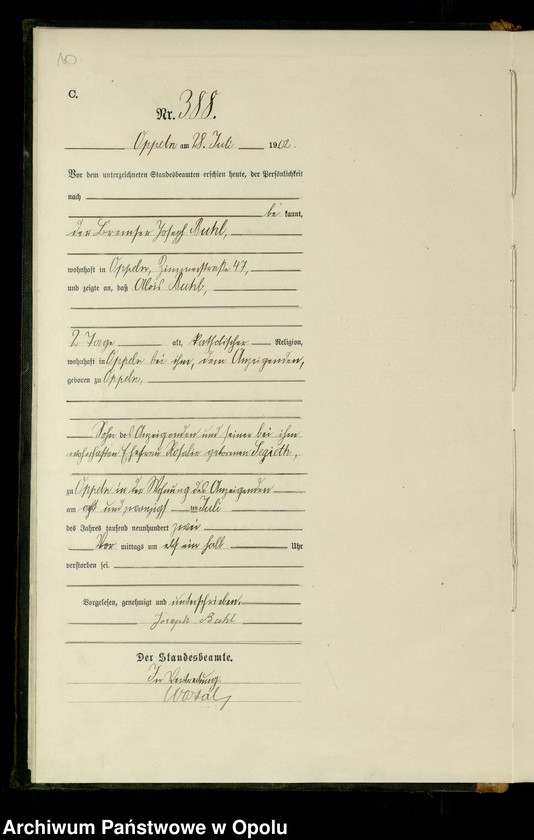 C.
Nr. 388.
Oppeln am 28. Juli 1902.
Vor dem unterzeichneten Standesbeamten erschien heute, der Persönlichkeit
nach
be kannt,
der Bremser Joseph
wohnhaft in Oppeln, Zimmerstraße 47,
und zeigte an, daß Alois
2 Tage alt, katholischer Religion,
wohnhaft in Oppeln bei ihm, dem Anzeigenden,
geboren zu Oppeln,
Sohn des Anzeigenden und seiner bei ihm
wohnhaften Ehefrau Rosalie geborenen
zu Oppeln in der Wohnung des Anzeigenden
am acht und zwanzigsten Juli
des Jahres tausend neunhundert zwei
Vor mittags um elf ein halb Uhr
verstorben sei.
Vorgelesen, genehmigt und unterschrieben.
Joseph
Der Standesbeamte.
In Vertretung.
Archiwum Państwowe w Opolu